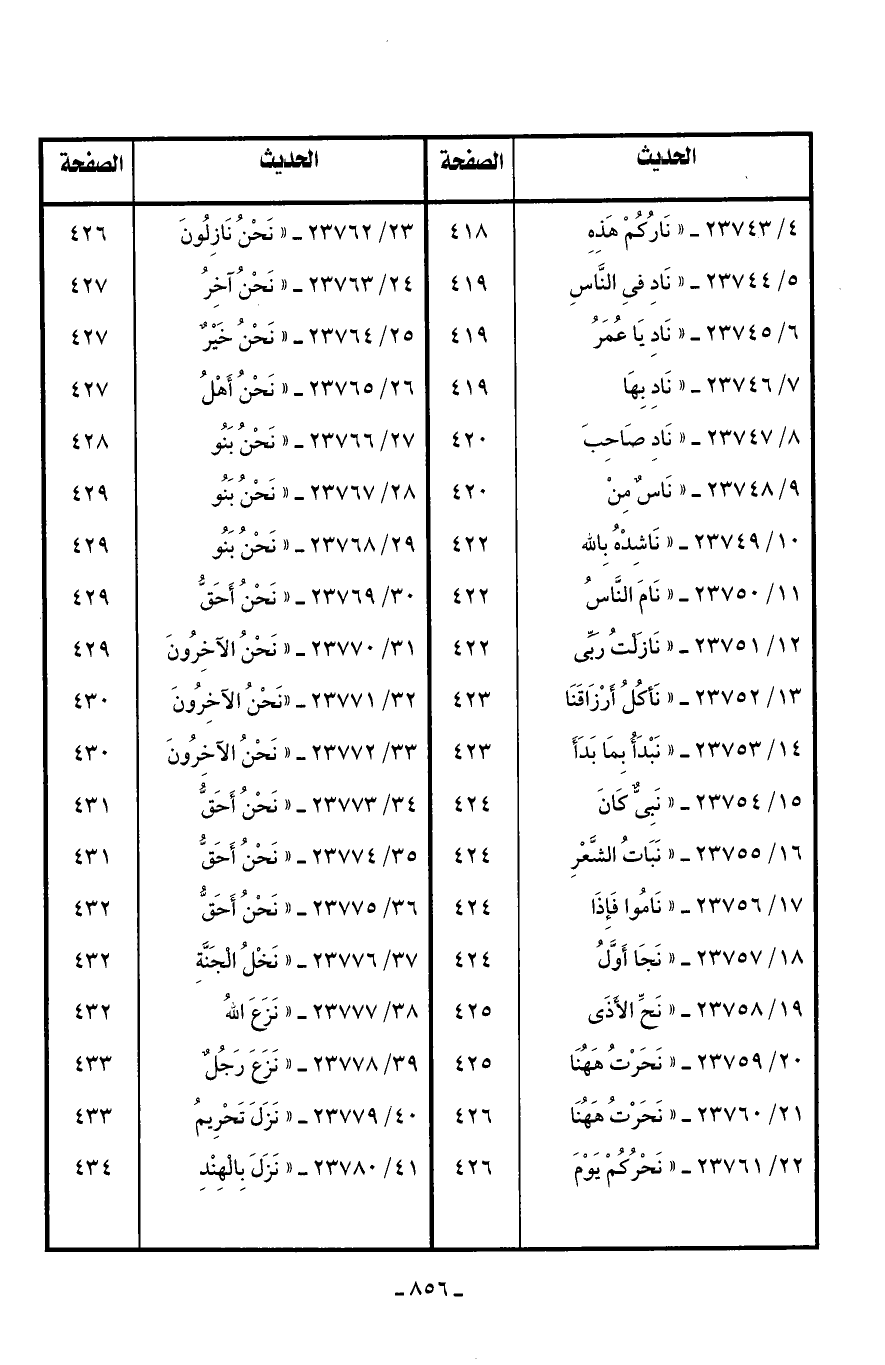 الحديث الصفحة الحديث الصفحة
٤/ ٢٣٧٤٣ ـ « نَارُكُمْ هَذِهِ ٤١٨ ٢٣/ ٢٣٧٦٢ ـ « نَحْنُ نَازِلُونَ ٤٢٦
٥/ ٢٣٧٤٤ ـ « نَادِ فِي النَّاسِ ٤١٩ ٢٤/ ٢٣٧٦٣ ـ « نَحْنُ آخِرُ ٤٢٧
٦/ ٢٣٧٤٥ ـ « نَادِ يَا عُمَرُ ٤١٩ ٢٥/ ٢٣٧٦٤ ـ « نَحْنُ خَيْرٌ ٤٢٧
٧/ ٢٣٧٤٦ ـ « نَادِ بِهَا ٤١٩ ٢٦/ ٢٣٧٦٥ ـ « نَحْنُ أَهْلُ ٤٢٧
٨/ ٢٣٧٤٧ ـ « نَادِ صَاحِبَ ٤٢٠ ٢٧/ ٢٣٧٦٦ ـ « نَحْنُ بَنُو ٤٢٨
٩/ ٢٣٧٤٨ ـ « نَاسٌ مِنْ ٤٢٠ ٢٨/ ٢٣٧٦٧ ـ « نَحْنُ بَنُو ٤٢٩
١٠/ ٢٣٧٤٩ ـ « نَاشِدْهُ بِالله ٤٢٢ ٢٩/ ٢٣٧٦٨ ـ « نَحْنُ بَنُو ٤٢٩
١١/ ٢٣٧٥٠ ـ « نَامَ النَّاسُ ٤٢٢ ٣٠/ ٢٣٧٦٩ ـ « نَحْنُ أَحَقُّ ٤٢٩
١٢/ ٢٣٧٥١ ـ « نَازَلْتُ رَبِّى ٤٢٢ ٣١/ ٢٣٧٧٠ ـ « نَحْنُ الآخِرُونَ ٤٢٩
١٣/ ٢٣٧٥٢ ـ « نَأكُلُ أَرْزَاقَنَا ٤٢٣ ٣٢/ ٢٣٧٧١ ـ «نَحْنُ الآخِرُونَ ٤٣٠
١٤/ ٢٣٧٥٣ ـ « نَبْدَأُ بِمَا بَدَأَ ٤٢٣ ٣٣/ ٢٣٧٧٢ ـ « نَحْنُ الآخِرُونَ ٤٣٠
١٥/ ٢٣٧٥٤ ـ « نَبِىٌّ كَانَ ٤٢٤ ٣٤/ ٢٣٧٧٣ ـ « نَحْنُ أَحَقُّ ٤٣١
١٦/ ٢٣٧٥٥ ـ « نَبَاتُ الشَّعْرِ ٤٢٤ ٣٥/ ٢٣٧٧٤ ـ « نَحْنُ أَحَقُّ ٤٣١
١٧/ ٢٣٧٥٦ ـ « نَامُوا فَإِذَا ٤٢٤ ٣٦/ ٢٣٧٧٥ ـ « نَحْنُ أَحَقُّ ٤٣٢
١٨/ ٢٣٧٥٧ ـ « نَجَا أَوَّلُ ٤٢٤ ٣٧/ ٢٣٧٧٦ ـ « نَخْلُ الْجَنَّةِ ٤٣٢
١٩/ ٢٣٧٥٨ ـ « نَحِّ الأَذَى ٤٢٥ ٣٨/ ٢٣٧٧٧ ـ « نَزَعَ اللهُ ٤٣٢
٢٠/ ٢٣٧٥٩ ـ « نَحَرْتُ هَهُنَا ٤٢٥ ٣٩/ ٢٣٧٧٨ ـ « نَزَعَ رَجُلٌ ٤٣٣
٢١/ ٢٣٧٦٠ ـ « نَحَرْتُ هَهُنَا ٤٢٦ ٤٠/ ٢٣٧٧٩ ـ « نَزَلَ تَحْرِيمُ ٤٣٣
٢٢/ ٢٣٧٦١ ـ « نَحْرُكُمْ يَوْمَ ٤٢٦ ٤١/ ٢٣٧٨٠ ـ « نَزَلَ بِالْهِنْدِ ٤٣٤
ـ ٨٥٦ ـ